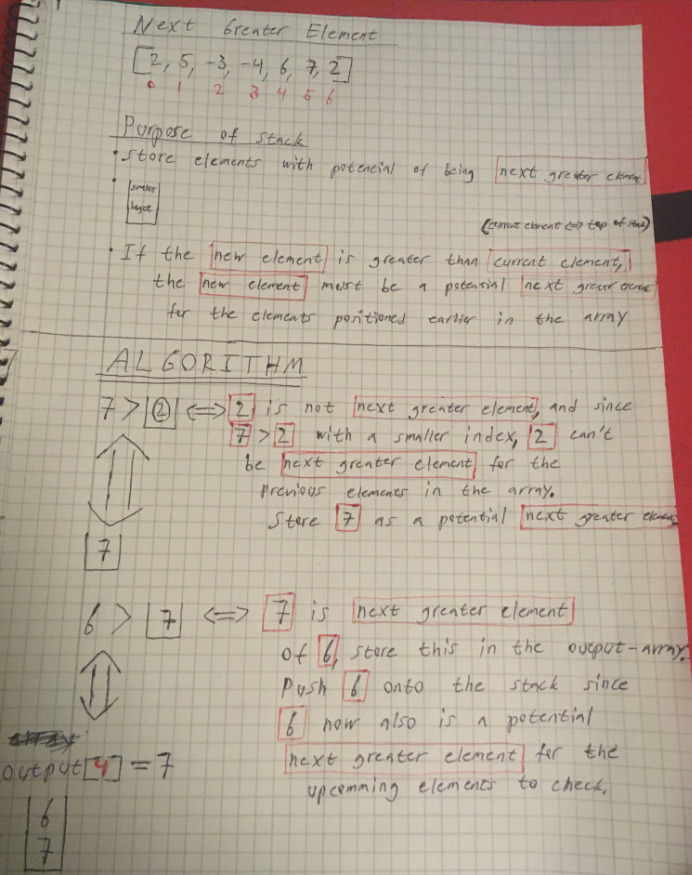 Next Greater Element
[2, 5, -3, -4, 6, 7, 2]
0 1 2 3 4 5 6
Purpose of stack
• Store elements with potential of being next greater element
•
smaller
larger
(current element <=> top of stack)
• If the new element is greater than current element,
the new element must be a potential next greater element
for the elements positioned earlier in the array
ALGORITHM
7 > 2 <=> 2 is not next greater element, and since
7 > 2 with a smaller index, 2 can't
be next greater element for the
previous elements in the array.
Store 7 as a potential next greater element
7
6 > 7 <=> 7 is next greater element
of 6, store this in the output-array.
Push 6 onto the stack since
6 now also is a potential
next greater element for the
upcomming elements to check,
output[4] = 7
6
7